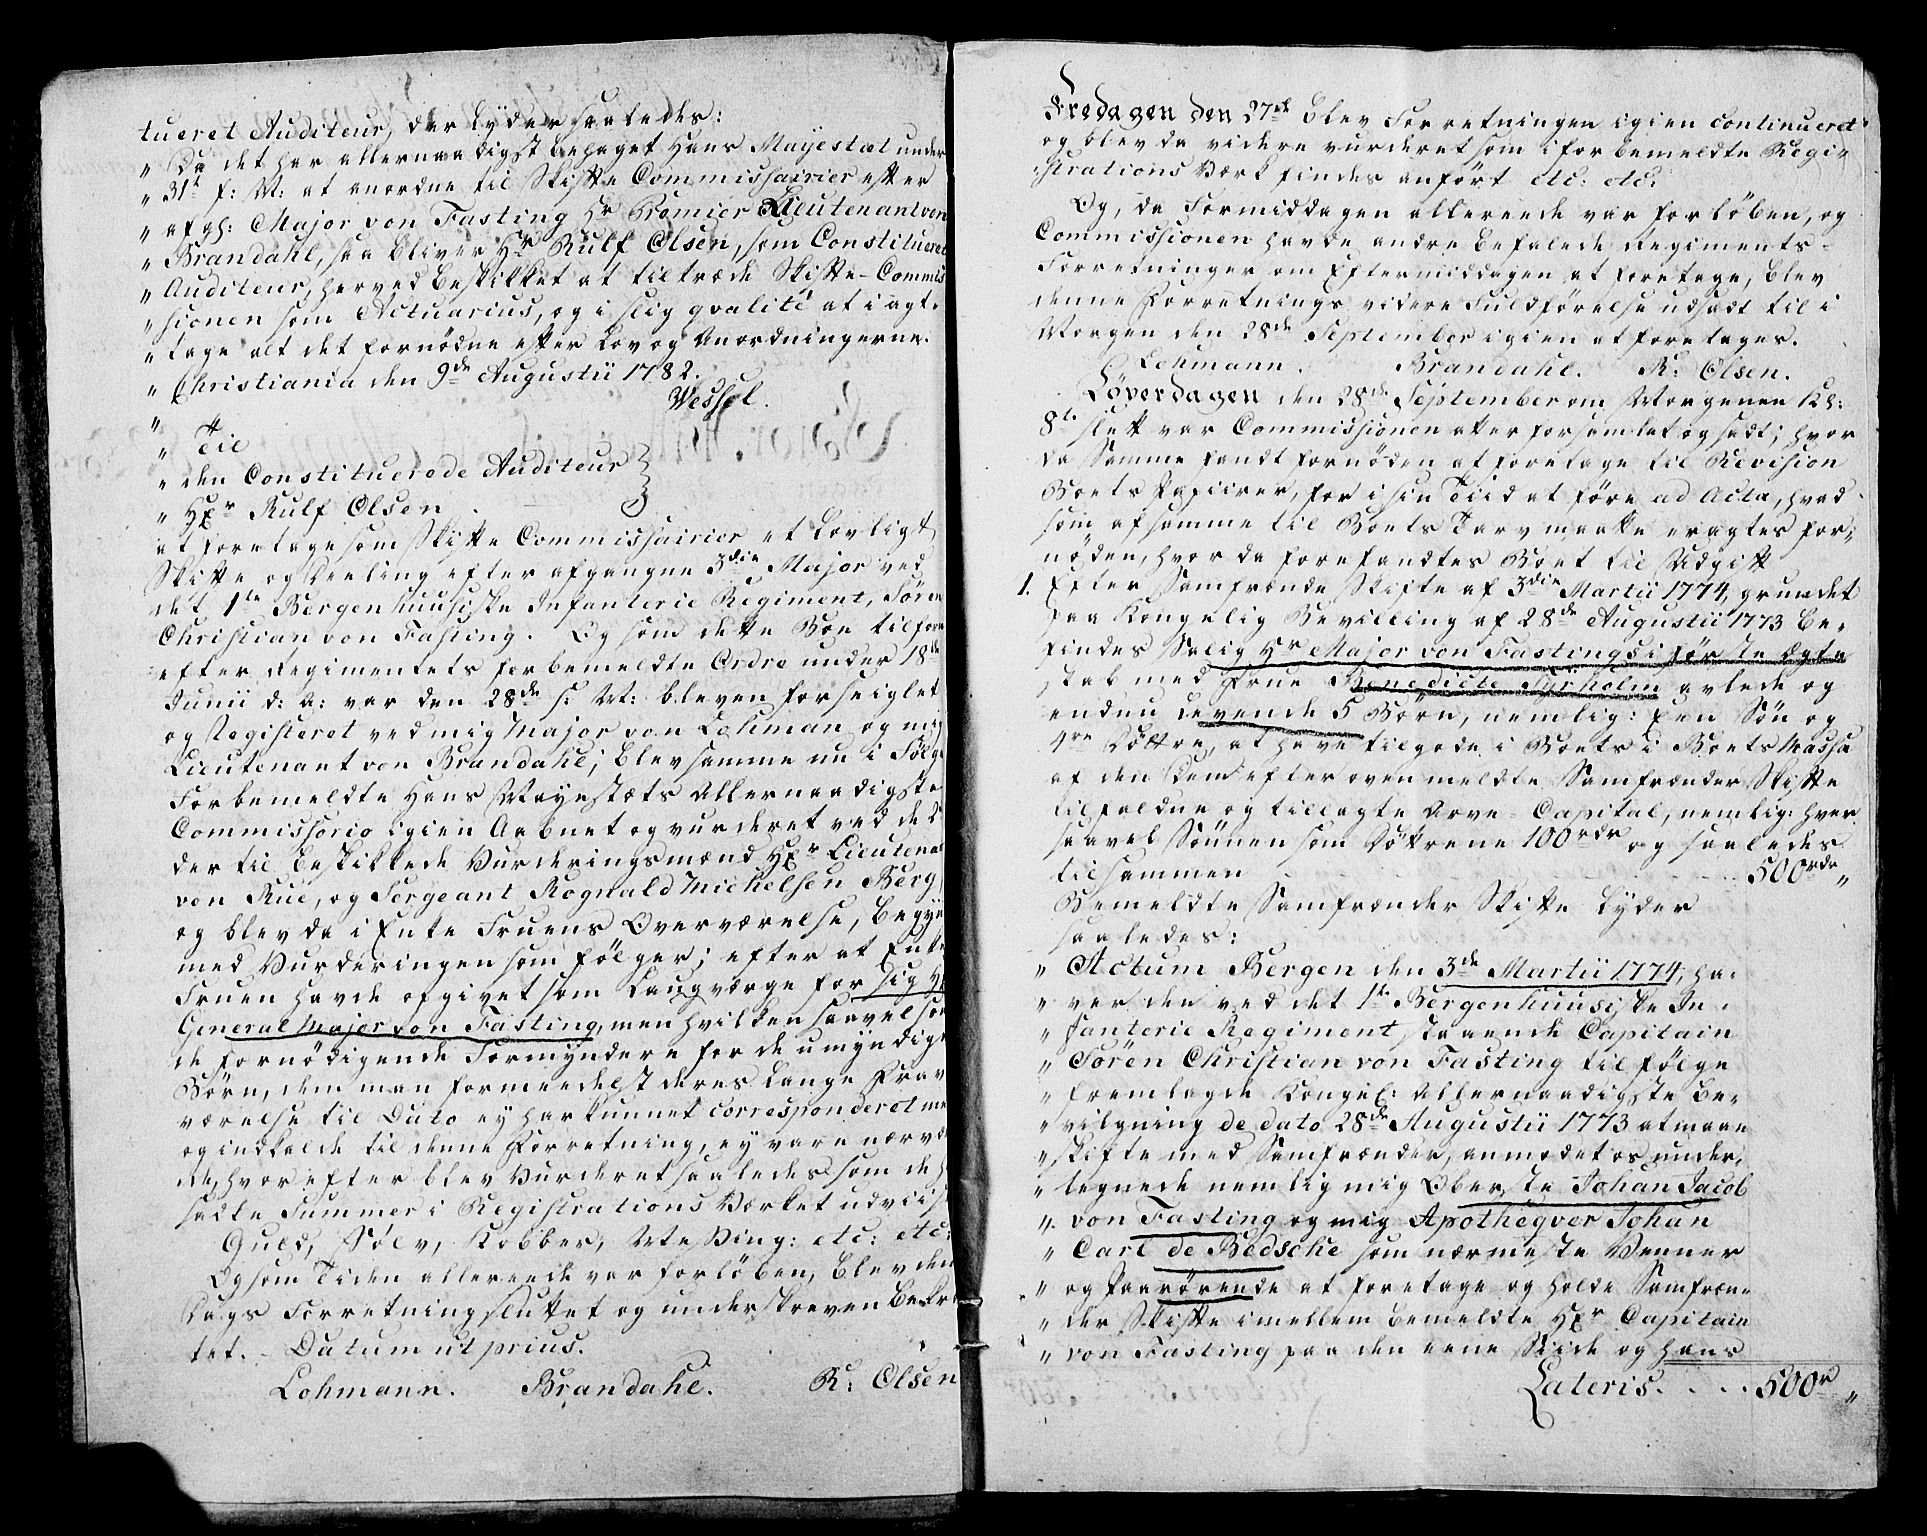 tueret Auditeur, der lyder saaledes:
" Da det har allernaadigst behaget Hans Mayestæt under
" 31te f: M: at anordne til Skifte Commissairier efter
" afgl: Major von Fasting Hr Premier Lieutenant von
" Brandahl, saa bliver Hr Rulf Olsen, som Constitueret
" Auditeur, herved beskikket at tiltræde Skifte-Commis
" sionen som Actuarius, og i slig qvalité at iagt-
" tage alt det fornödne efter Lov og Anordningerne.
" Christiania den 9de Augustii 1782.
Wessel.
"
" Til
" den Constituerede Auditeur
" Hr Rulf Olsen.
at foretage som Skifte Commissairier et Lovligt
Skifte og Deeling efter afgangne 3die Major ved
det 1te Bergenhuusiske Infanterie Regiment, Sören
Christian von Fasting. Og som dette Boe tilforn
efter Regimentets forbemeldte Ordre under 18de
Junii d: A: var den 28de s: M: bleven forseiglet
og Registeret ved mig Major von Lohman og mig
Lieutenant von Brandahl, blev samme nu i Fölge
Forbemeldte Hans Mayestæts Allernaadigste
Commissorio igien Aabnet og vurderet ved de
der til beskikkede Vurderingsmænd Hr Lieutenant
von Rue, og Sergeant Rognald Michelsen Berg,
og blev da i Enke Fruens Overværelse, begyn
med Vurderingen som fölger; efter at Enke
Fruen havde opgivet som Laugværge for sig Hr
General Major von Fasting, men hvilken saavel som
de fornödigende Formyndere for de umyndige
Börn, dem man formedelst deres lange Fra-
værelse til Dato ey har kunnet corresponderet med
og indkalde til denne Forretning, ey vare nærvæ
de, hvor efter blev Vurderet saaledes som de h
sadte Summer i Registrations Værket udviise
Guld, Sölv, Kobber, Messing: etc: etc:
Og som Tiden allereede var forlöben, blev den
Dags Forretning sluttet og underskreven bekræ
tet. Datum ut prius.
Lohmann. Brandahl. R: Olsen
Fredagen den 27de blev Forretningen igien continueret
og blev da videre vurderet som i forbemeldte Regi-
strations Værk findes anfört etc: etc:
Og, da Formiddagen allereede var forlöben, og
Commissionen havde andre befalede Regiments-
Forretninger om Eftermiddagen at foretage, blev
denne Forretnings videre Fuldförelse udsadt til i
Morgen den 28de September igien at foretages.
Lohmann. Brandahl. R: Olsen.
Löverdagen den 28de September om Morgenen Kl:
8te slett var Commissionen atter forsamlet og sadt; hvor
da Samme fandt fornöden at foretage til Revision
Boets Papiirer, for i sin Tiid at före ad Acta, hvad
som af samme til Boets Tarv maatte eragtes for-
nöden, hvor da forefandtes Boet til Udgift
1. Efter Samfrænde Skifte af 3die Martii 1774, grundet
paa Kongelig Bevilling af 28de Augustii 1773 be-
findes Salig Hr Major von Fastings i förste Egte
skab med Frue Benedicte Tyrholm avlede og
endnu levende 5 Börn, nemlig: Een Sön og
4re Döttre, at have tilgode i Boets i Boets Massa
af den Dem efter ovenmeldte Samfrænder Skifte
tilfaldne og tillagte Arve-Capital, nemlig: hver
saavel Sönnen som Döttrene 100rdr og saaledes
tilsammen . . . . 500rdr "
Bemeldte Samfrænder Skifte lyder
saaledes:
" Actum Bergen den 3de Martii 1774, ha-
" ver den ved det 1te Bergenhuusiske In-
" fanterie Regiment staaende Capitain
" Sören Christian von Fasting til fölge
" fremlagde Kongel: Allernaadigste be-
" vilgning de dato 28de Augustii 1773 at maae
" skifte med Samfrænder, anmodet os under-
" tegnede nemlig mig Oberste Johan Jacob
" von Fasting og mig Apotheqver Johan
" Carl de Bedsche som nærmeste Venner
" og Paarörende at foretage og holde Samfræn-
" der Skifte imellem bemeldte Hr Capitain
" von Fasting paa den eene Side og hans
Lateris. . . . 500r "